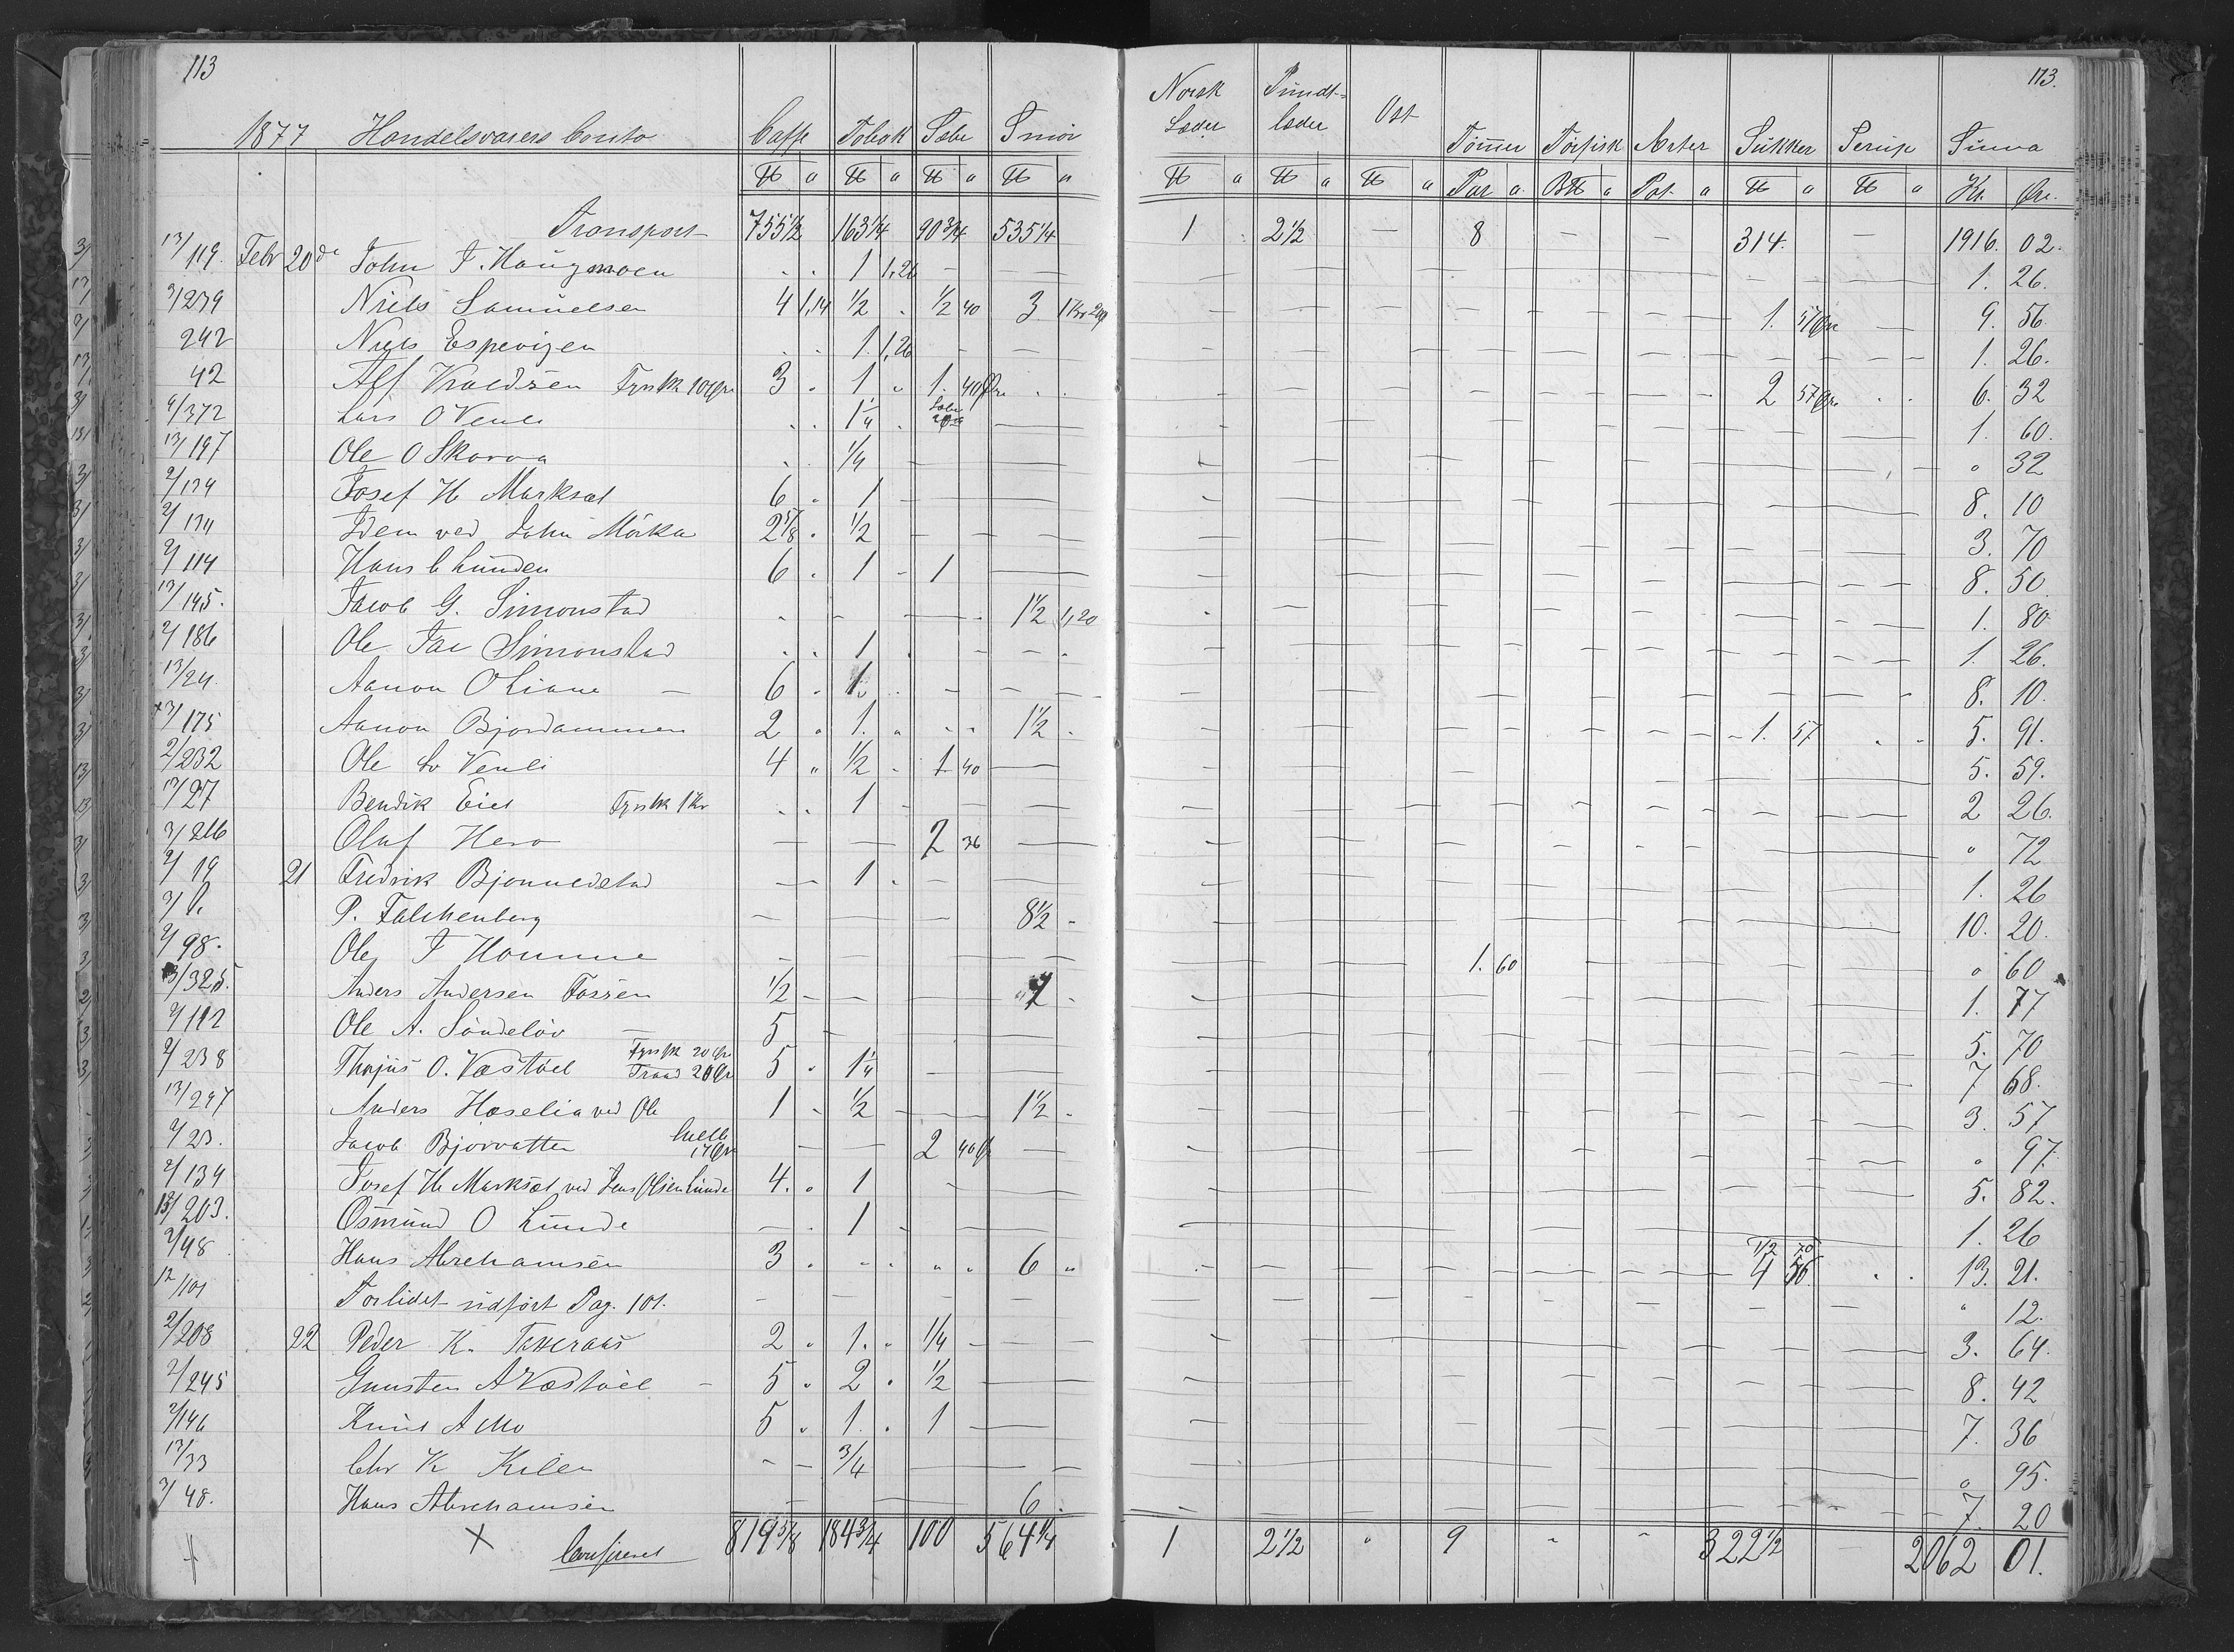 113 113.
1877 Handelsvarers Conto Caffe Tobak Sæbe Smör Norsk Læder Pundt= læder Ost Tömmer Törfisk Ærter Sukker Serup Suma
℔ a ℔ a ℔ a ℔ a ℔ a ℔ a ℔ a Par a B℔ a Pot a ℔ a ℔ a Kr. Øre.
Transport 755 1/2 163 1/4 90 3/4 535 1/4 1 2 1/2 — 8 — — 314. — 1916. 02.
13/119. Febr 20de John J. Haugmoen 1 1,26 1. 26.
3/239 Niels Samuelsen 4 1,14 1/2 1/2 40 3 1 Kr 20 1. 57 Øre 9. 56.
242 Niels Espevigen 1. 1,26 1. 26.
42 Alf Knudsen Fyrstk 10 Øre 3 1 1. 40 Øre 2 57 Øre 6. 32
9/372 Lars O Venli 1 1/4 Sæbe 20 1. 60.
13/197 Ole O Skaroa 1/4 " 32
2/134 Josef H Marksæt 6 1 8. 10
2/134 Idem ved John Mörka 2 5/8 1/2 3. 70
2/114 Hans C Lunden 6 1 1 8. 50
13/145. Jacob G. Simonstad 1 1/2 1,20 1. 80
2/186 Ole Jac Simonstad 1 1. 26.
13/24. Aanon O Liane 6 1. 8. 10.
3/175 Aanon Bjordammen 2 1. 1 1/2 1. 57 5. 91.
2/232 Ole Sv Venli 4 1/2 1 40 5. 59.
13/27 Bendik Eiet Fyrstk 1 Kr 1 2 26.
3/216 Oluf Hero 2 36 " 72
2/19 21 Fredrik Bjonnedstad 1 1. 26
3/1. P. Falchenberg 8 1/2 10. 20.
2/98. Ole J Homme 1. 60 " 60
3/325. Anders Andersen Fossen 1/2 1 1. 77
2/112 Ole A. Söndeløv 5 5. 70
2/238 Thorjus O. Væstöel Fyrstk 20 Øre Traad 20 Øre 5 1 1/4 7 68.
13/297 Anders Hæselia ved Ole 1 1/2 1 1/2 3. 57
2/23. Jacob Bjorvatten 17 Øre 2 40 Ø " 97.
2/134 Josef H. Marksæt ved Jens Olsen Lunde 4. 1 5. 82.
13/203. Osmund O Lunde 1 1. 26
2/48 Hans Abrehamsen 3 6 1/2 70 4 56. 13. 21.
12/101 Forlidet udfört Pag. 101. " 12.
2/208 22 Peder K. Tveraas 2 1. 1/4 3. 64.
2/245 Gunsten A Væstöel 5 2 1/2 8. 42
2/146 Knud A Mo 5 1. 1 7. 36
13/33 Chr K Kilen 3/4 " 95.
3/48. Hans Abrehamsen 6 7. 20
819 5/8 184 3/4 100 564 1/4 1 2 1/2 " 9 " " 322 1/2 — 2062 01.